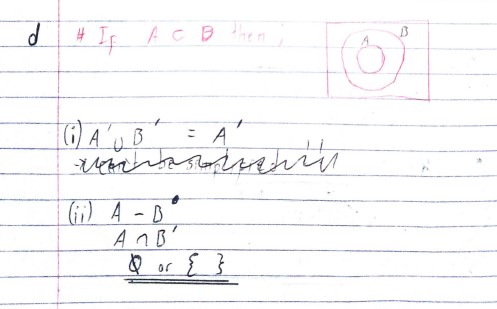 d # If A ⊂ B then;
A B
(i) A' ∪ B' = A'
(ii) A - B
A ∩ B'
∅ or { }